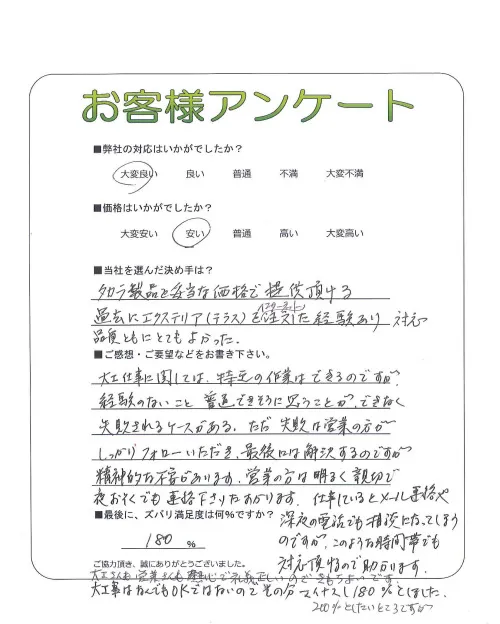 お客様アンケート
■弊社の対応はいかがでしたか?
大変良い 良い 普通 不満 大変不満
■価格はいかがでしたか?
大変安い 安い 普通 高い 大変高い
■当社を選んだ決め手は?
タカラ製品を妥当な価格で提供頂ける
(インターネット)
過去にエクステリア(テラス)を注文した経験あり 対応
品質ともにとてもよかった.
■ご感想・ご要望などをお書き下さい。
大工仕事に関しては、特定の作業はできるのですが、
経験のないこと 普通できそうに思うことが、できなく
失敗されるケースがある. ただ 失敗は営業の方が
しっかりフォローいただき、最後には解決するのですが
精神的な不安があります. 営業の方は明るく親切で
夜おそくでも連絡下さりたすかります. 仕事しているとメール連絡や
■最後に、ズバリ満足度は何%ですか?
深夜の電話でも相談になってしまう
のですが、このような時間帯でも
対応頂けるので助かります.
180 %
ご協力頂き、誠にありがとうございました。
大工さんも営業さんも 礼儀正しいのできもちよいです.
大工事はなんでもOKではないのでその分マイナスし180%でしました.
200%としたいところですが